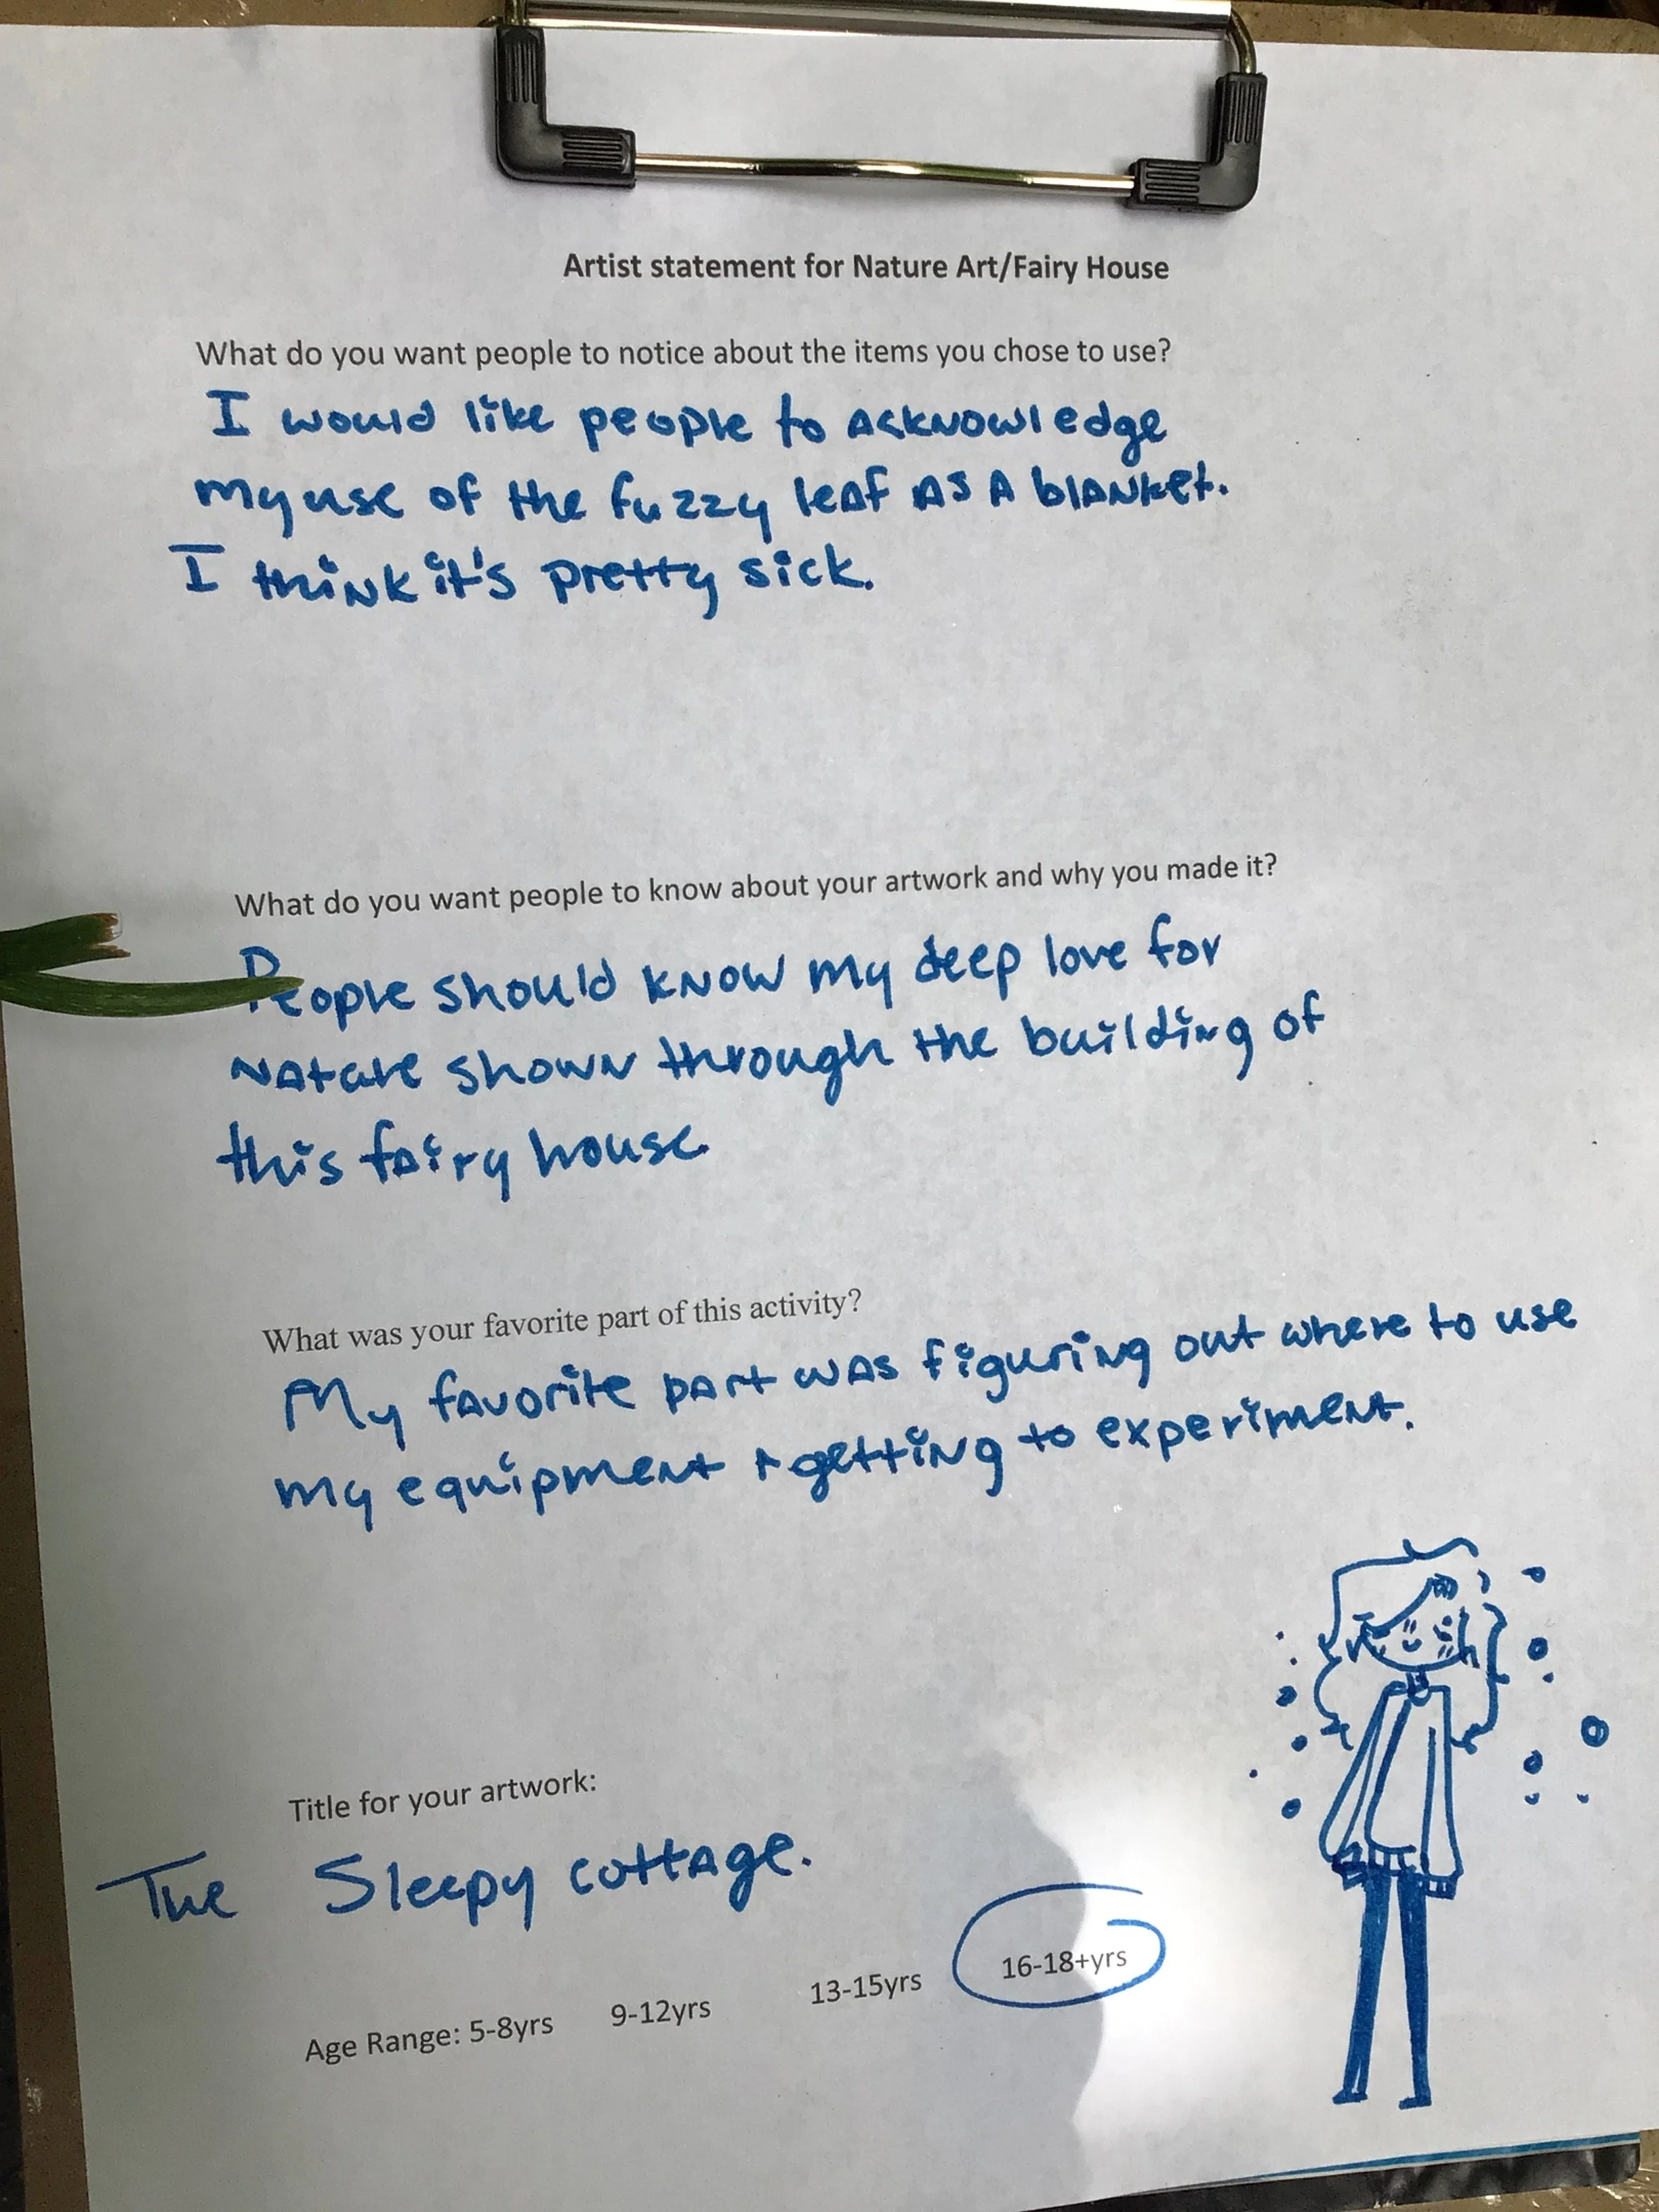 Artist statement for Nature Art/Fairy House
What do you want people to notice about the items you chose to use?
I would like people to acknowledge
my use of the fuzzy leaf as a blanket.
I think it's pretty sick.
What do you want people to know about your artwork and why you made it?
People should know my deep love for
nature shown through the building of
this fairy house.
What was your favorite part of this activity?
My favorite part was figuring out where to use
my equipment + getting to experiment.
Title for your artwork:
The Sleepy cottage.
Age Range: 5-8yrs 9-12yrs 13-15yrs 16-18+yrs